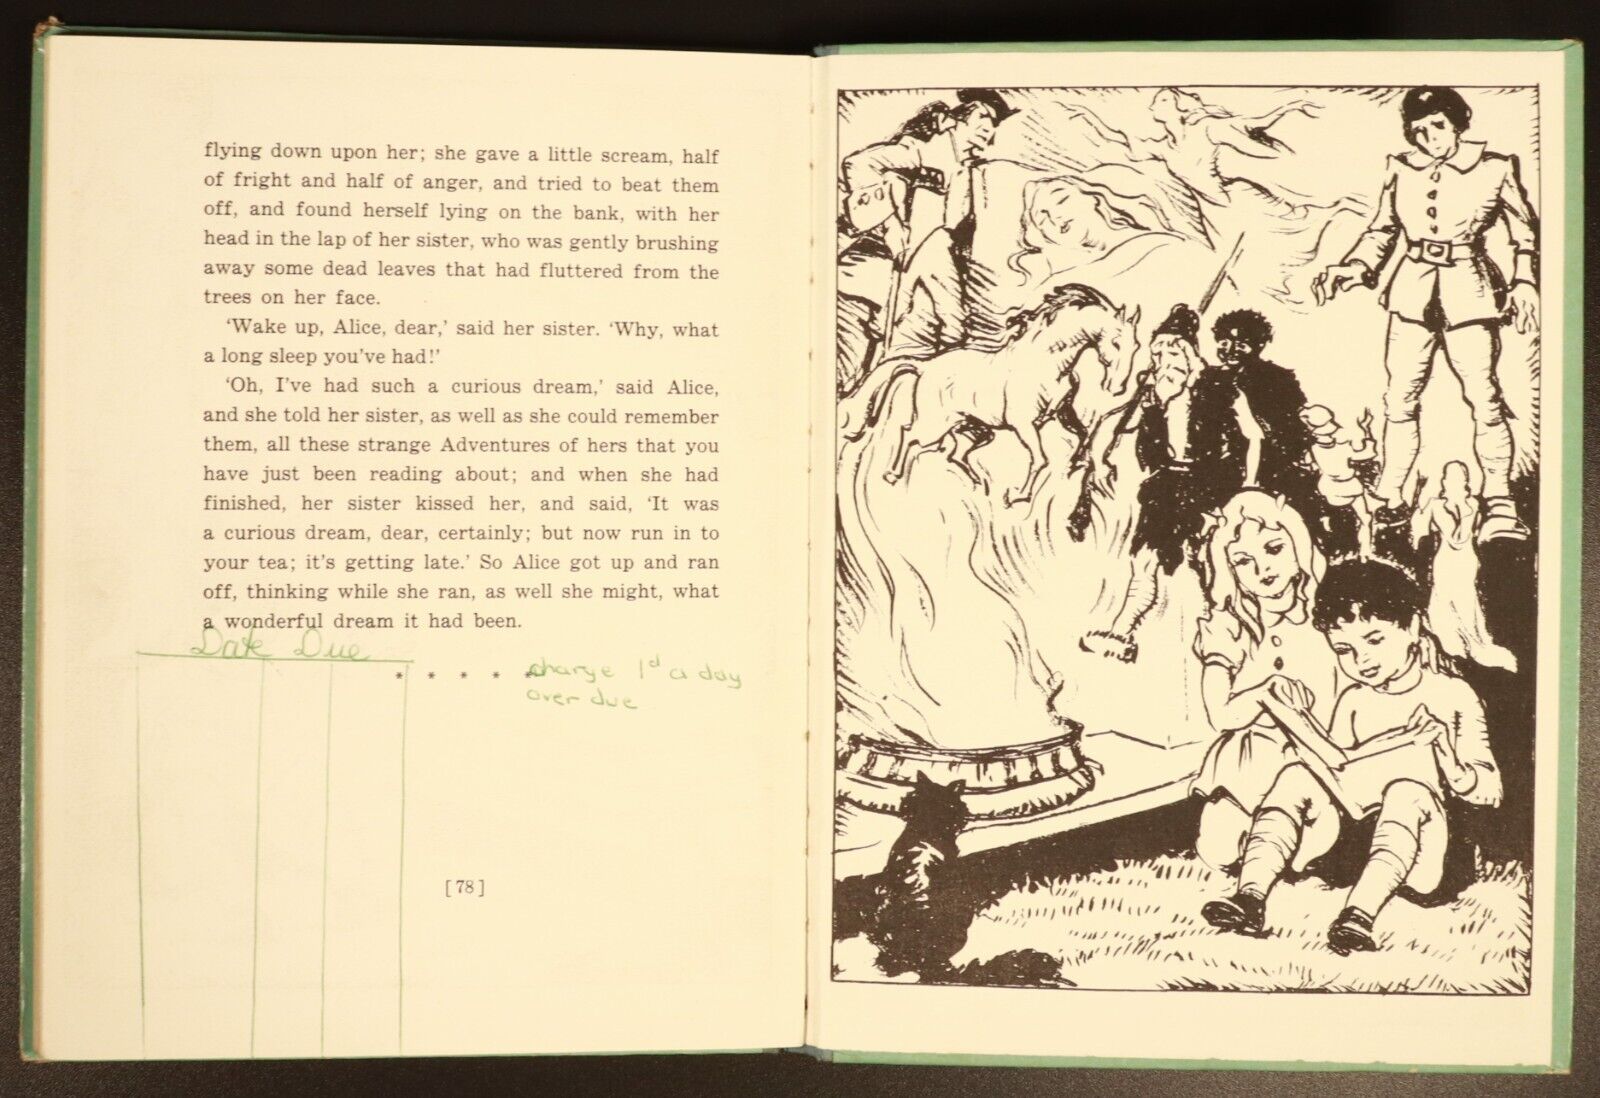 flying down upon her; she gave a little scream, half
of fright and half of anger, and tried to beat them
off, and found herself lying on the bank, with her
head in the lap of her sister, who was gently brushing
away some dead leaves that had fluttered from the
trees on her face.
‘Wake up, Alice, dear,’ said her sister. ‘Why, what
a long sleep you’ve had!’
‘Oh, I’ve had such a curious dream,’ said Alice,
and she told her sister, as well as she could remember
them, all these strange Adventures of hers that you
have just been reading about; and when she had
finished, her sister kissed her, and said, ‘It was
a curious dream, dear, certainly; but now run in to
your tea; it’s getting late.’ So Alice got up and ran
off, thinking while she ran, as well she might, what
a wonderful dream it had been.
Date Due
* * * * *
charge 1d a day
over due
[ 78 ]